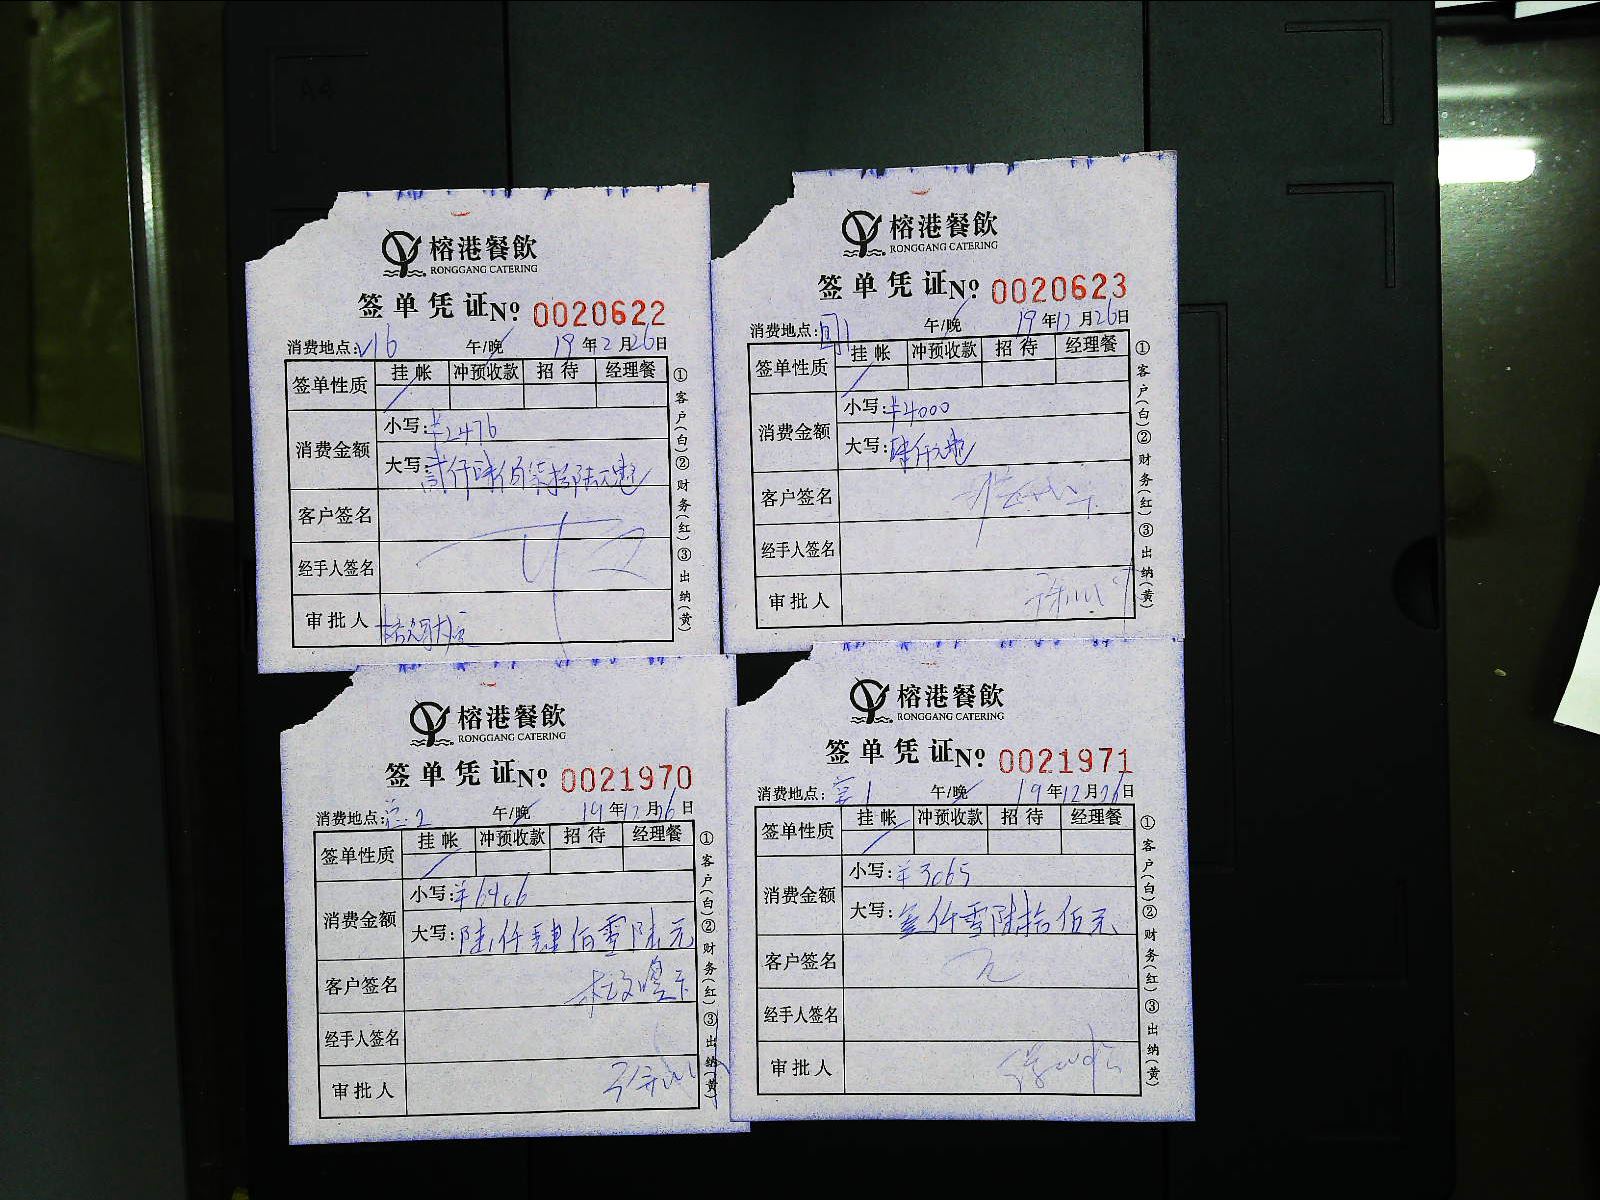 A4
榕港餐飲
RONGGANG CATERING
签单凭证 № 0020622
消费地点: V16 午/晚 19年2月26日
签单性质 挂帐 冲预收款 招待 经理餐
消费金额 小写: ¥2476
大写: 贰仟肆佰柒拾陆元
客户签名
经手人签名
审批人
①客户(白)②财务(红)③出纳(黄)
榕港餐飲
RONGGANG CATERING
签单凭证 № 0020623
消费地点: 午/晚 19年12月26日
签单性质 挂帐 冲预收款 招待 经理餐
消费金额 小写: ¥4000
大写: 肆仟元
客户签名
经手人签名
审批人
①客户(白)②财务(红)③出纳(黄)
榕港餐飲
RONGGANG CATERING
签单凭证 № 0021970
消费地点: 2 午/晚 19年12月26日
签单性质 挂帐 冲预收款 招待 经理餐
消费金额 小写: ¥6406
大写: 陆仟肆佰零陆元
客户签名
经手人签名
审批人
①客户(白)②财务(红)③出纳(黄)
榕港餐飲
RONGGANG CATERING
签单凭证 № 0021971
消费地点: 1 午/晚 19年12月26日
签单性质 挂帐 冲预收款 招待 经理餐
消费金额 小写: ¥3065
大写: 仟零陆拾伍元
客户签名
经手人签名
审批人
①客户(白)②财务(红)③出纳(黄)